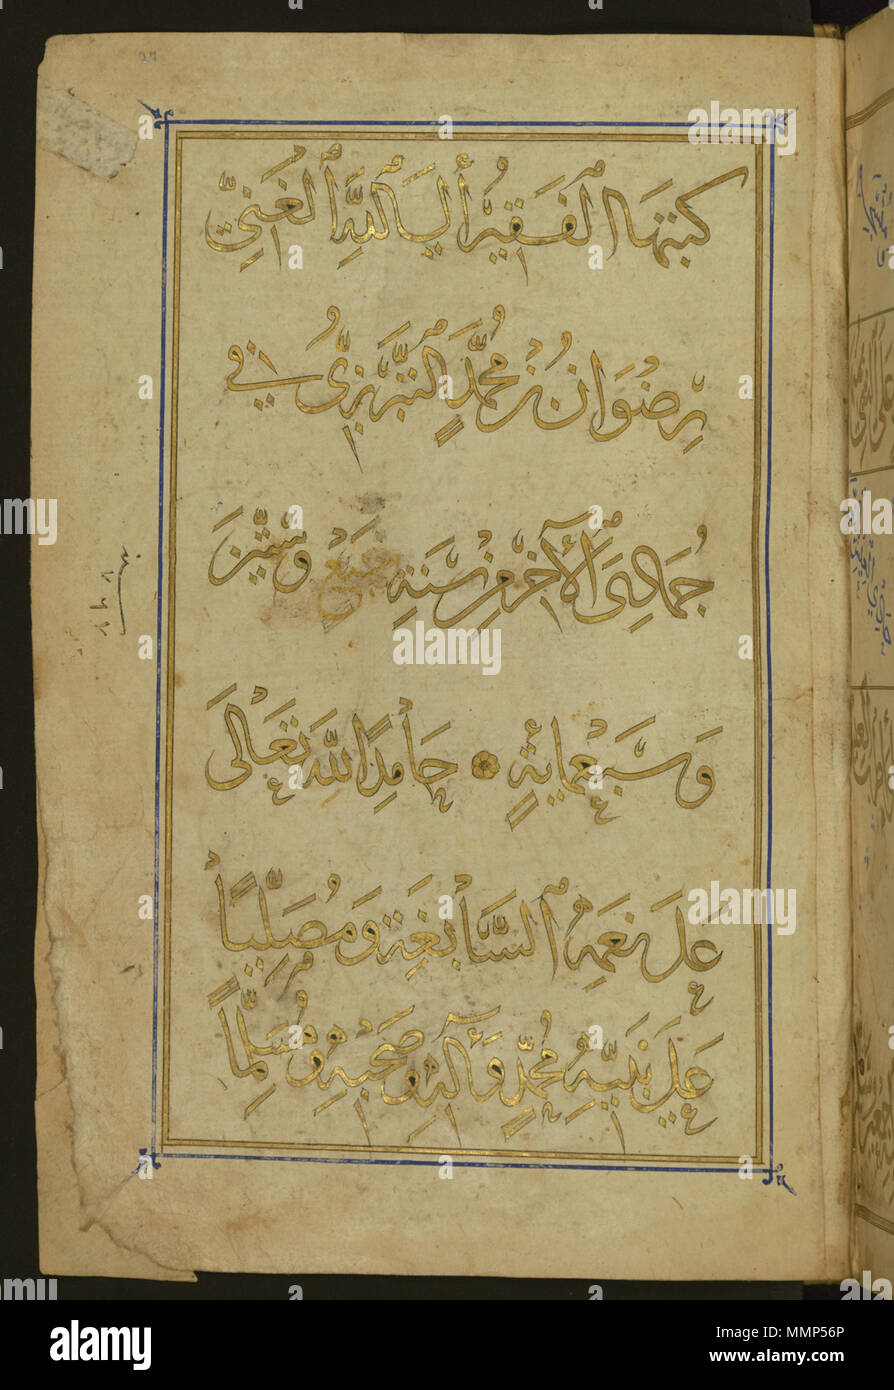 27
كَتَبَهَا الْفَقِيرُ إِلَى اللهِ الْغَنِيِّ
رِضْوَانُ بْنُ مُحَمَّدٍ التَّبْرِيزِيُّ فِي
جُمَادَى الْآخِرِ مِنْ سَنَةِ وَسِتِّينَ
وَسَبْعِمِايَةٍ حَامِدًا للهِ تَعَالَى
عَلَى نِعَمِهِ السَّابِغَةِ وَمُصَلِّيًا
عَلَى نَبِيِّهِ مُحَمَّدٍ وَآلِهِ وَصَحْبِهِ وَمُسَلِّمًا
alamy
Image ID: MMP56P
www.alamy.com